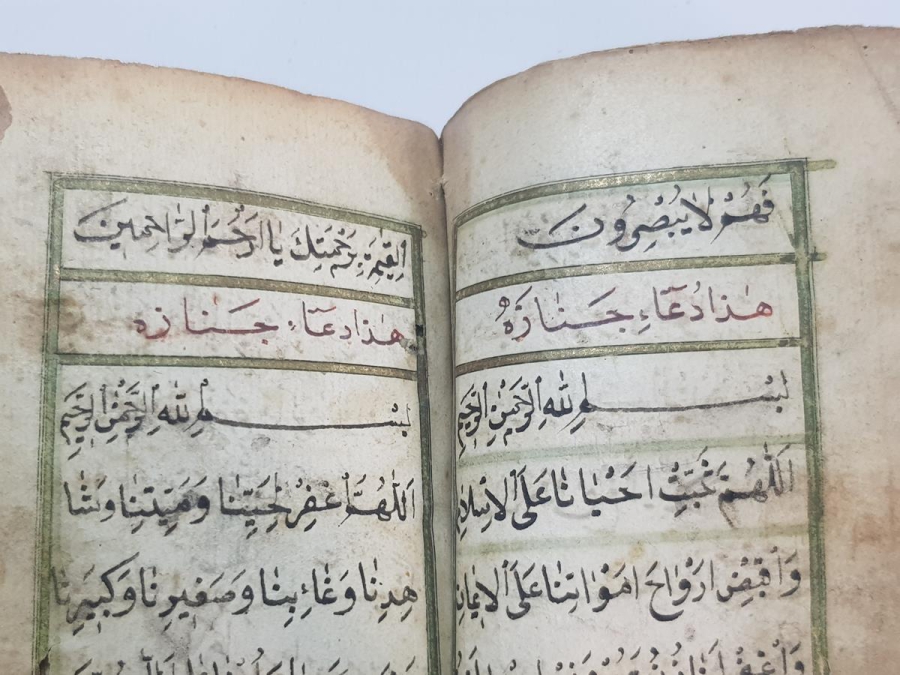 فَهُمْ لَا يُبْصِرُونَ
هٰذَا دُعَاءِ جَنَازَهْ
بِسْمِ اللهِ الرَّحْمٰنِ الرَّحِيمِ
اَللّٰهُمَّ ثَبِّتْ اَحْيَانَا عَلَى الْاِسْلَامِ
وَاقْبِضْ اَرْوَاحَ اَمْوَاتِنَا عَلَى الْاِيمَانِ
الْقِيٰمَةِ بِرَحْمَتِكَ يَا اَرْحَمَ الرَّاحِمِينَ
هٰذَا دعَاءِ جَنَازه
بِسْمِ اللهِ الرَّحْمٰنِ الرَّحِيمِ
اَللّٰهُمَّ اغْفِرْ لِحَيِّنَا وَمَيِّتِنَا وَشَا
هِدِنَا وَغَائِبِنَا وَصَغِيرِنَا وَكَبِيرِنَا